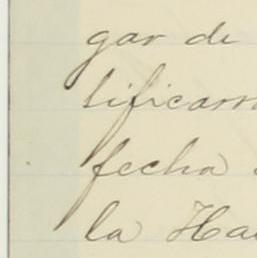 gar de
tificarn
fecha
la Ha